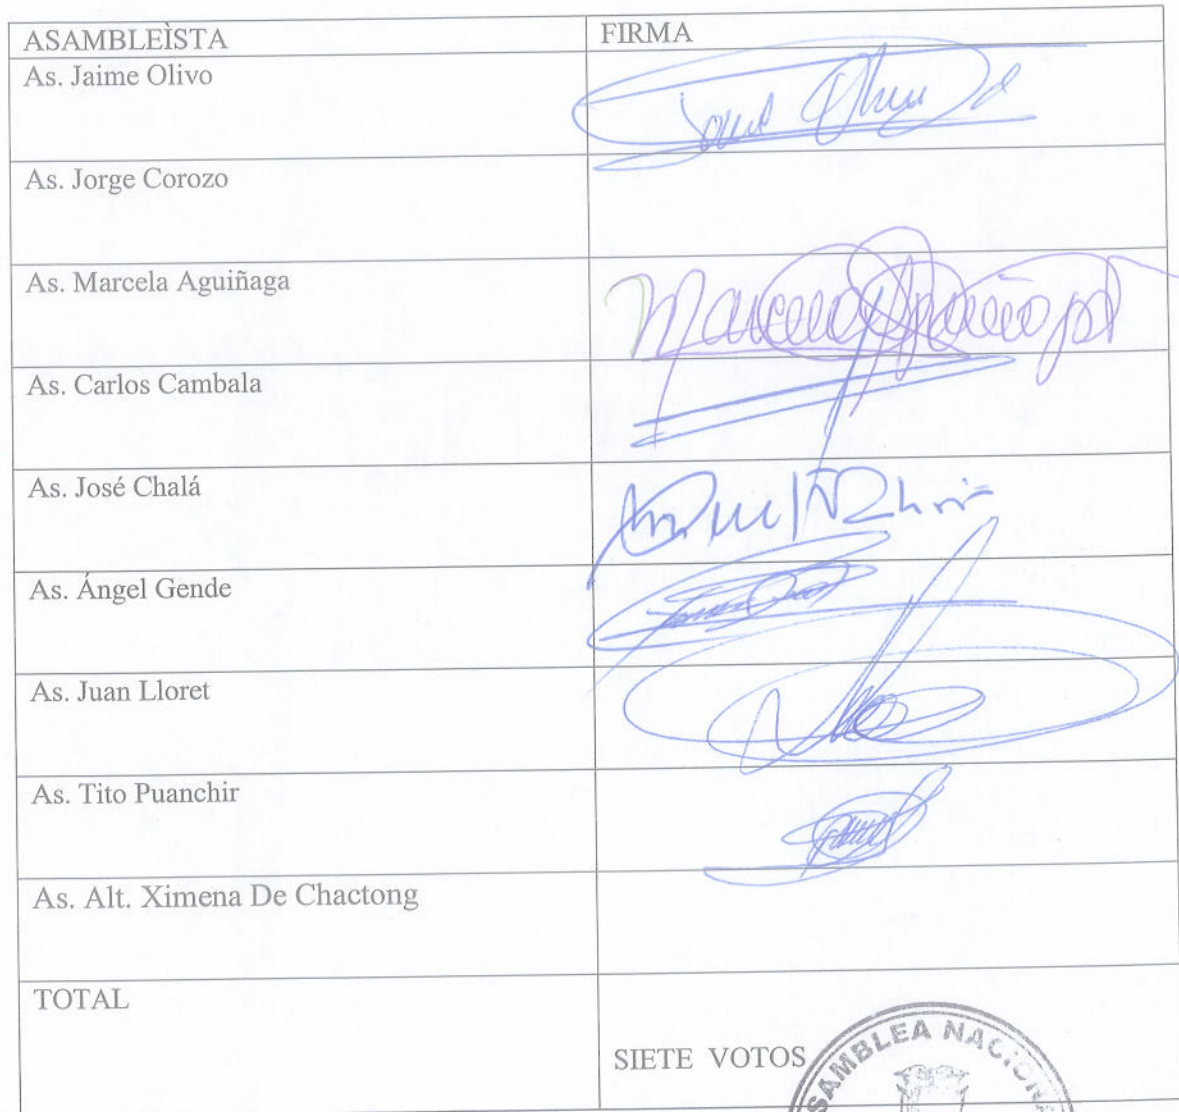 ASAMBLEÌSTA FIRMA
As. Jaime Olivo
As. Jorge Corozo
As. Marcela Aguiñaga
As. Carlos Cambala
As. José Chalá
As. Ángel Gende
As. Juan Lloret
As. Tito Puanchir
As. Alt. Ximena De Chactong
TOTAL
SIETE VOTOS